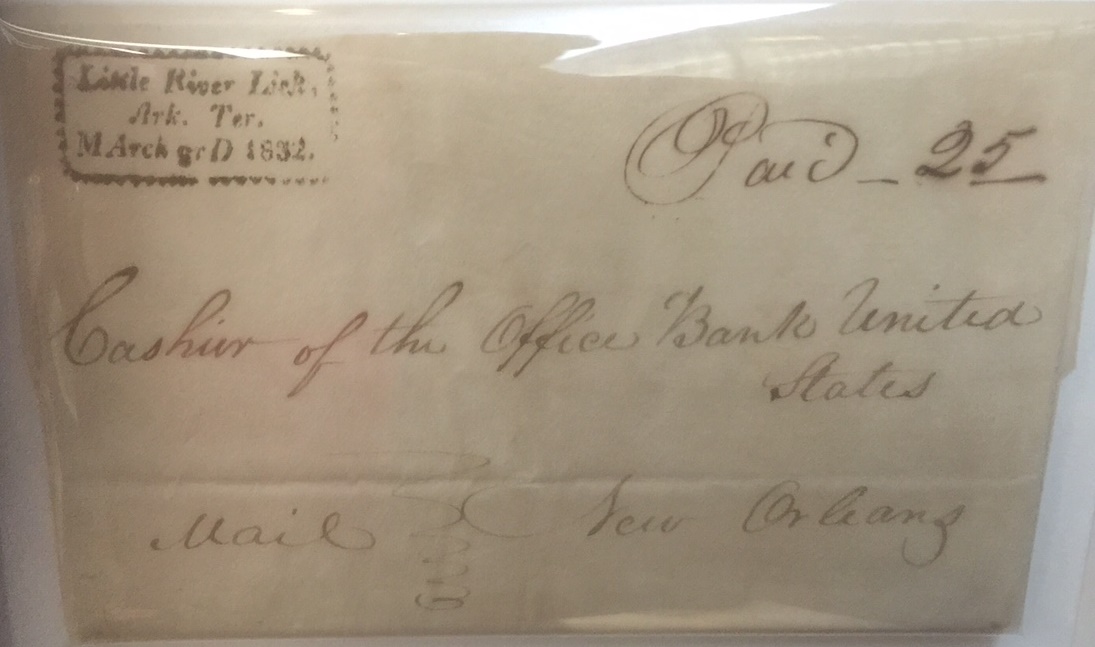 Little River Lick,
Ark. Ter.
MArch grD 1832.
Paid _ 25
Cashier of the Office Bank United
States
Mail
New Orleans